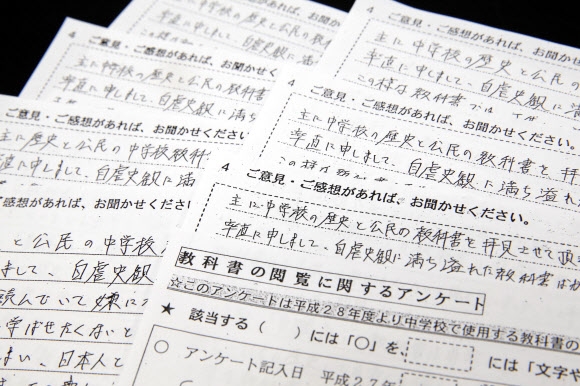 4 ご意見・ご感想があれば、お聞かせく
主に中学校の歴史と公民の教科書
率直に申しまして、自虐史観
4 ご意見・ご感想があれば、お聞か
主に中学校の歴史と公民の
率直に申しまして、自虐史観に
この様な教科書では
ご意見・ご感想があれば、お聞かせください。
主に中学校の歴史と公民の教科書を拝
率直に申しまして、自虐史観に満ち溢れ
ご意見・ご感想があれば、お聞かせください。
主に歴史と公民の中学校教科
率直に申しまして、自虐史観に満
ご感想があれば、お聞かせください。
4 ご意見・ご感想があれば、お聞かせください。
主に中学校の歴史と公民の教科書を拝見させて頂き
率直に申しまして、自虐史観に満ち溢れた教科書ばか
と公民の中学校
まして、自虐史観に満
読んでいて嫌に
学ばせたくないと
まい、日本人と
教科書の閲覧に関するアンケート
☆このアンケートは平成28年度より中学校で使用する教科書の
★ 該当する( )には「○」を、
には「文字や
○ アンケート記入日 平成27年